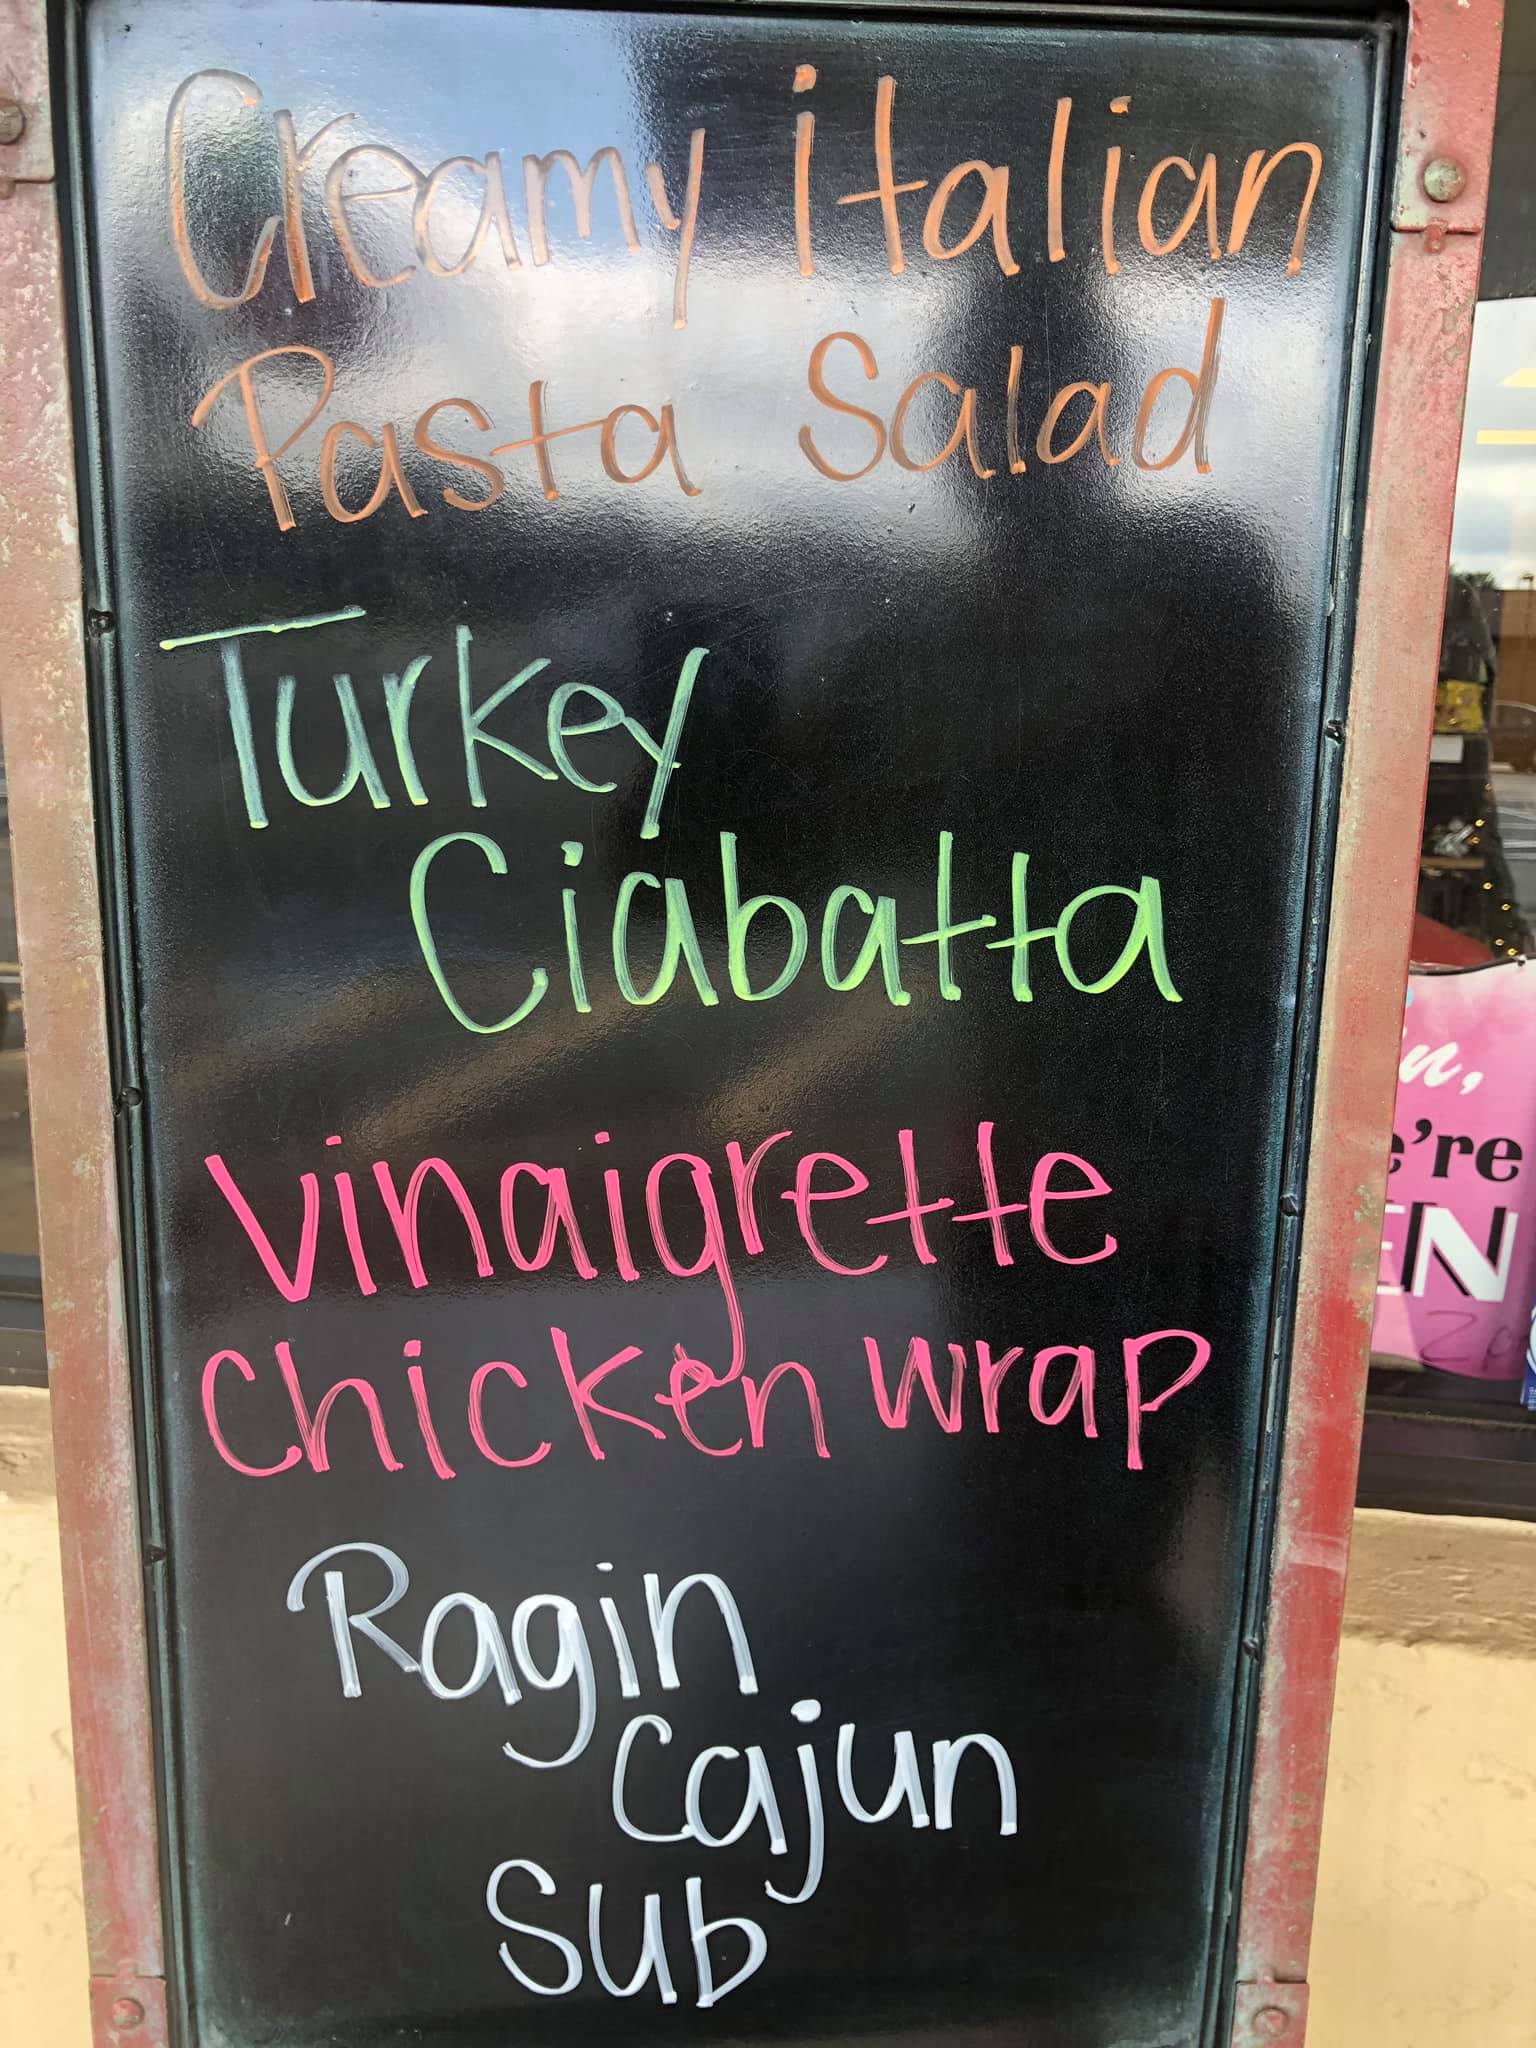 Creamy italian
Pasta Salad
Turkey
Ciabatta
Vinaigrette
Chicken wrap
Ragin
Cajun
Sub
're